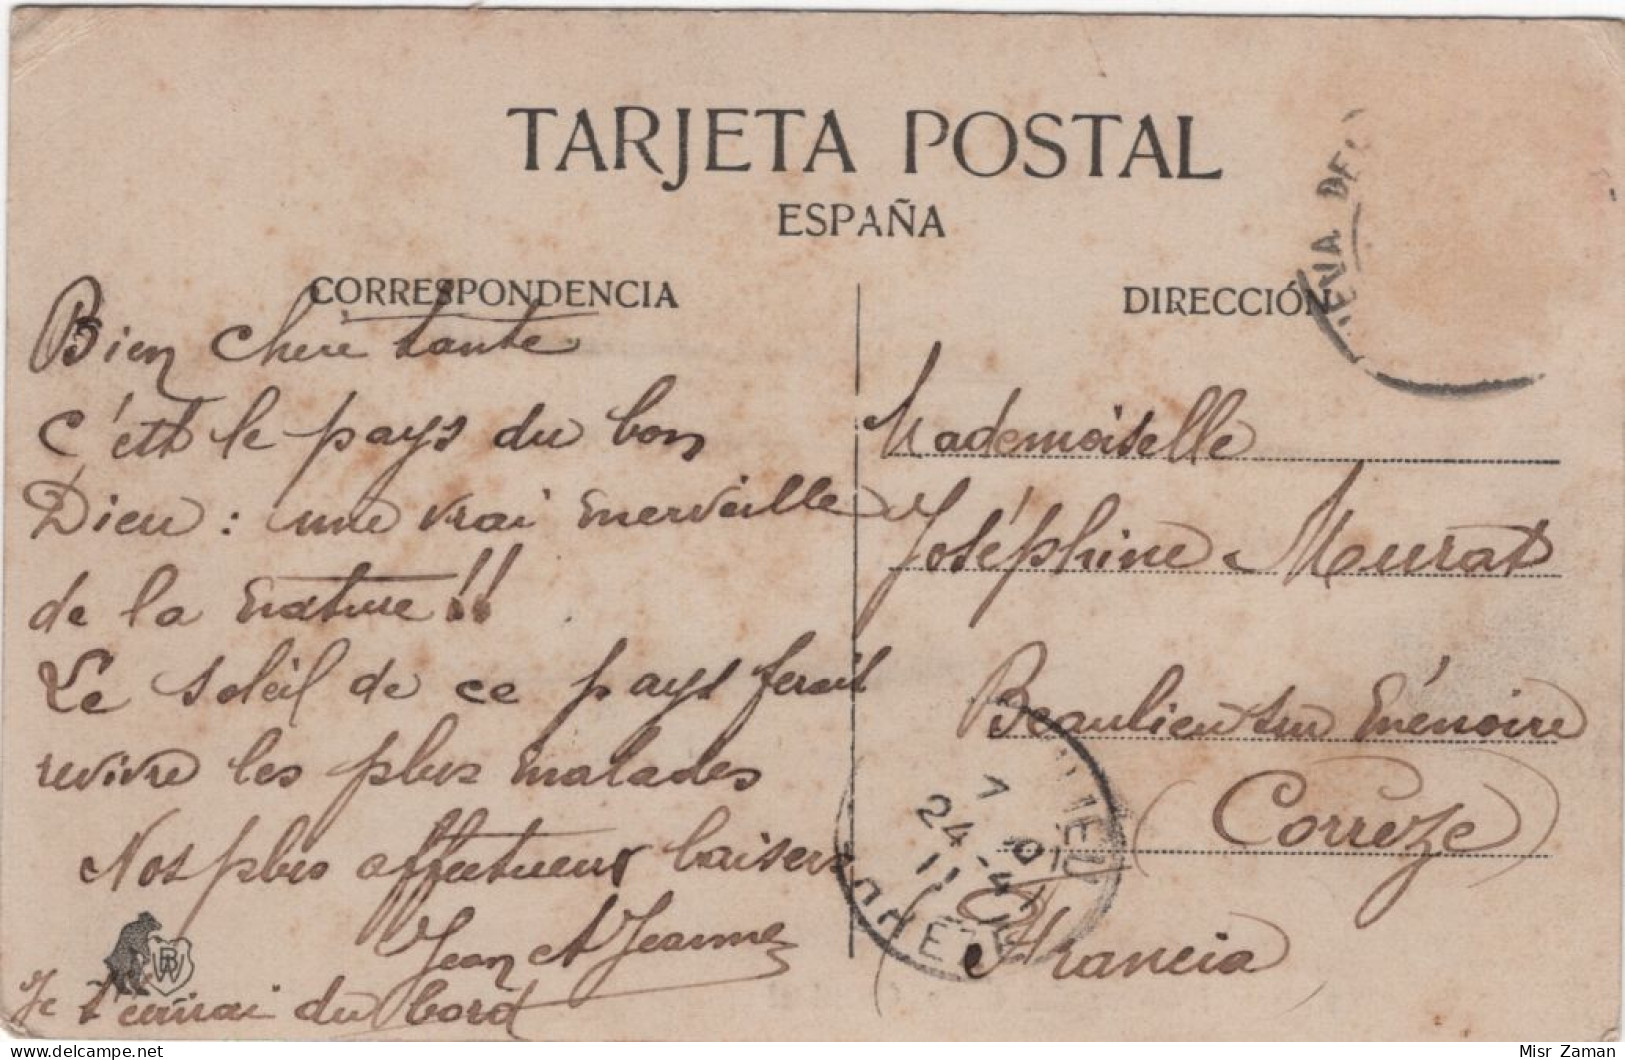 TARJETA POSTAL
ESPAÑA
CORRESPONDENCIA
Bien chère tante
C'est le pays du bon
Dieu : une vrai merveille
de la nature !!
Le soleil de ce pays ferait
revivre les plus malades
Nos plus affectueux baisers
Jean et Jeanne
Je t'écrirai du bord
DIRECCIÓN
Mademoiselle
Joséphine Meurat
Beaulieu sur Ménoire
(Corrèze)
Francia
24
11
Misr Zaman